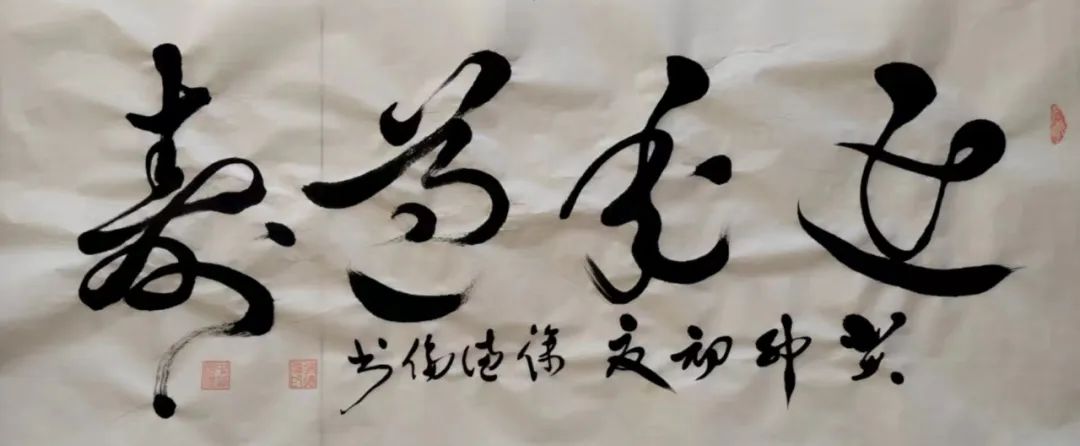 延年益寿
癸卯初夏 徐德书